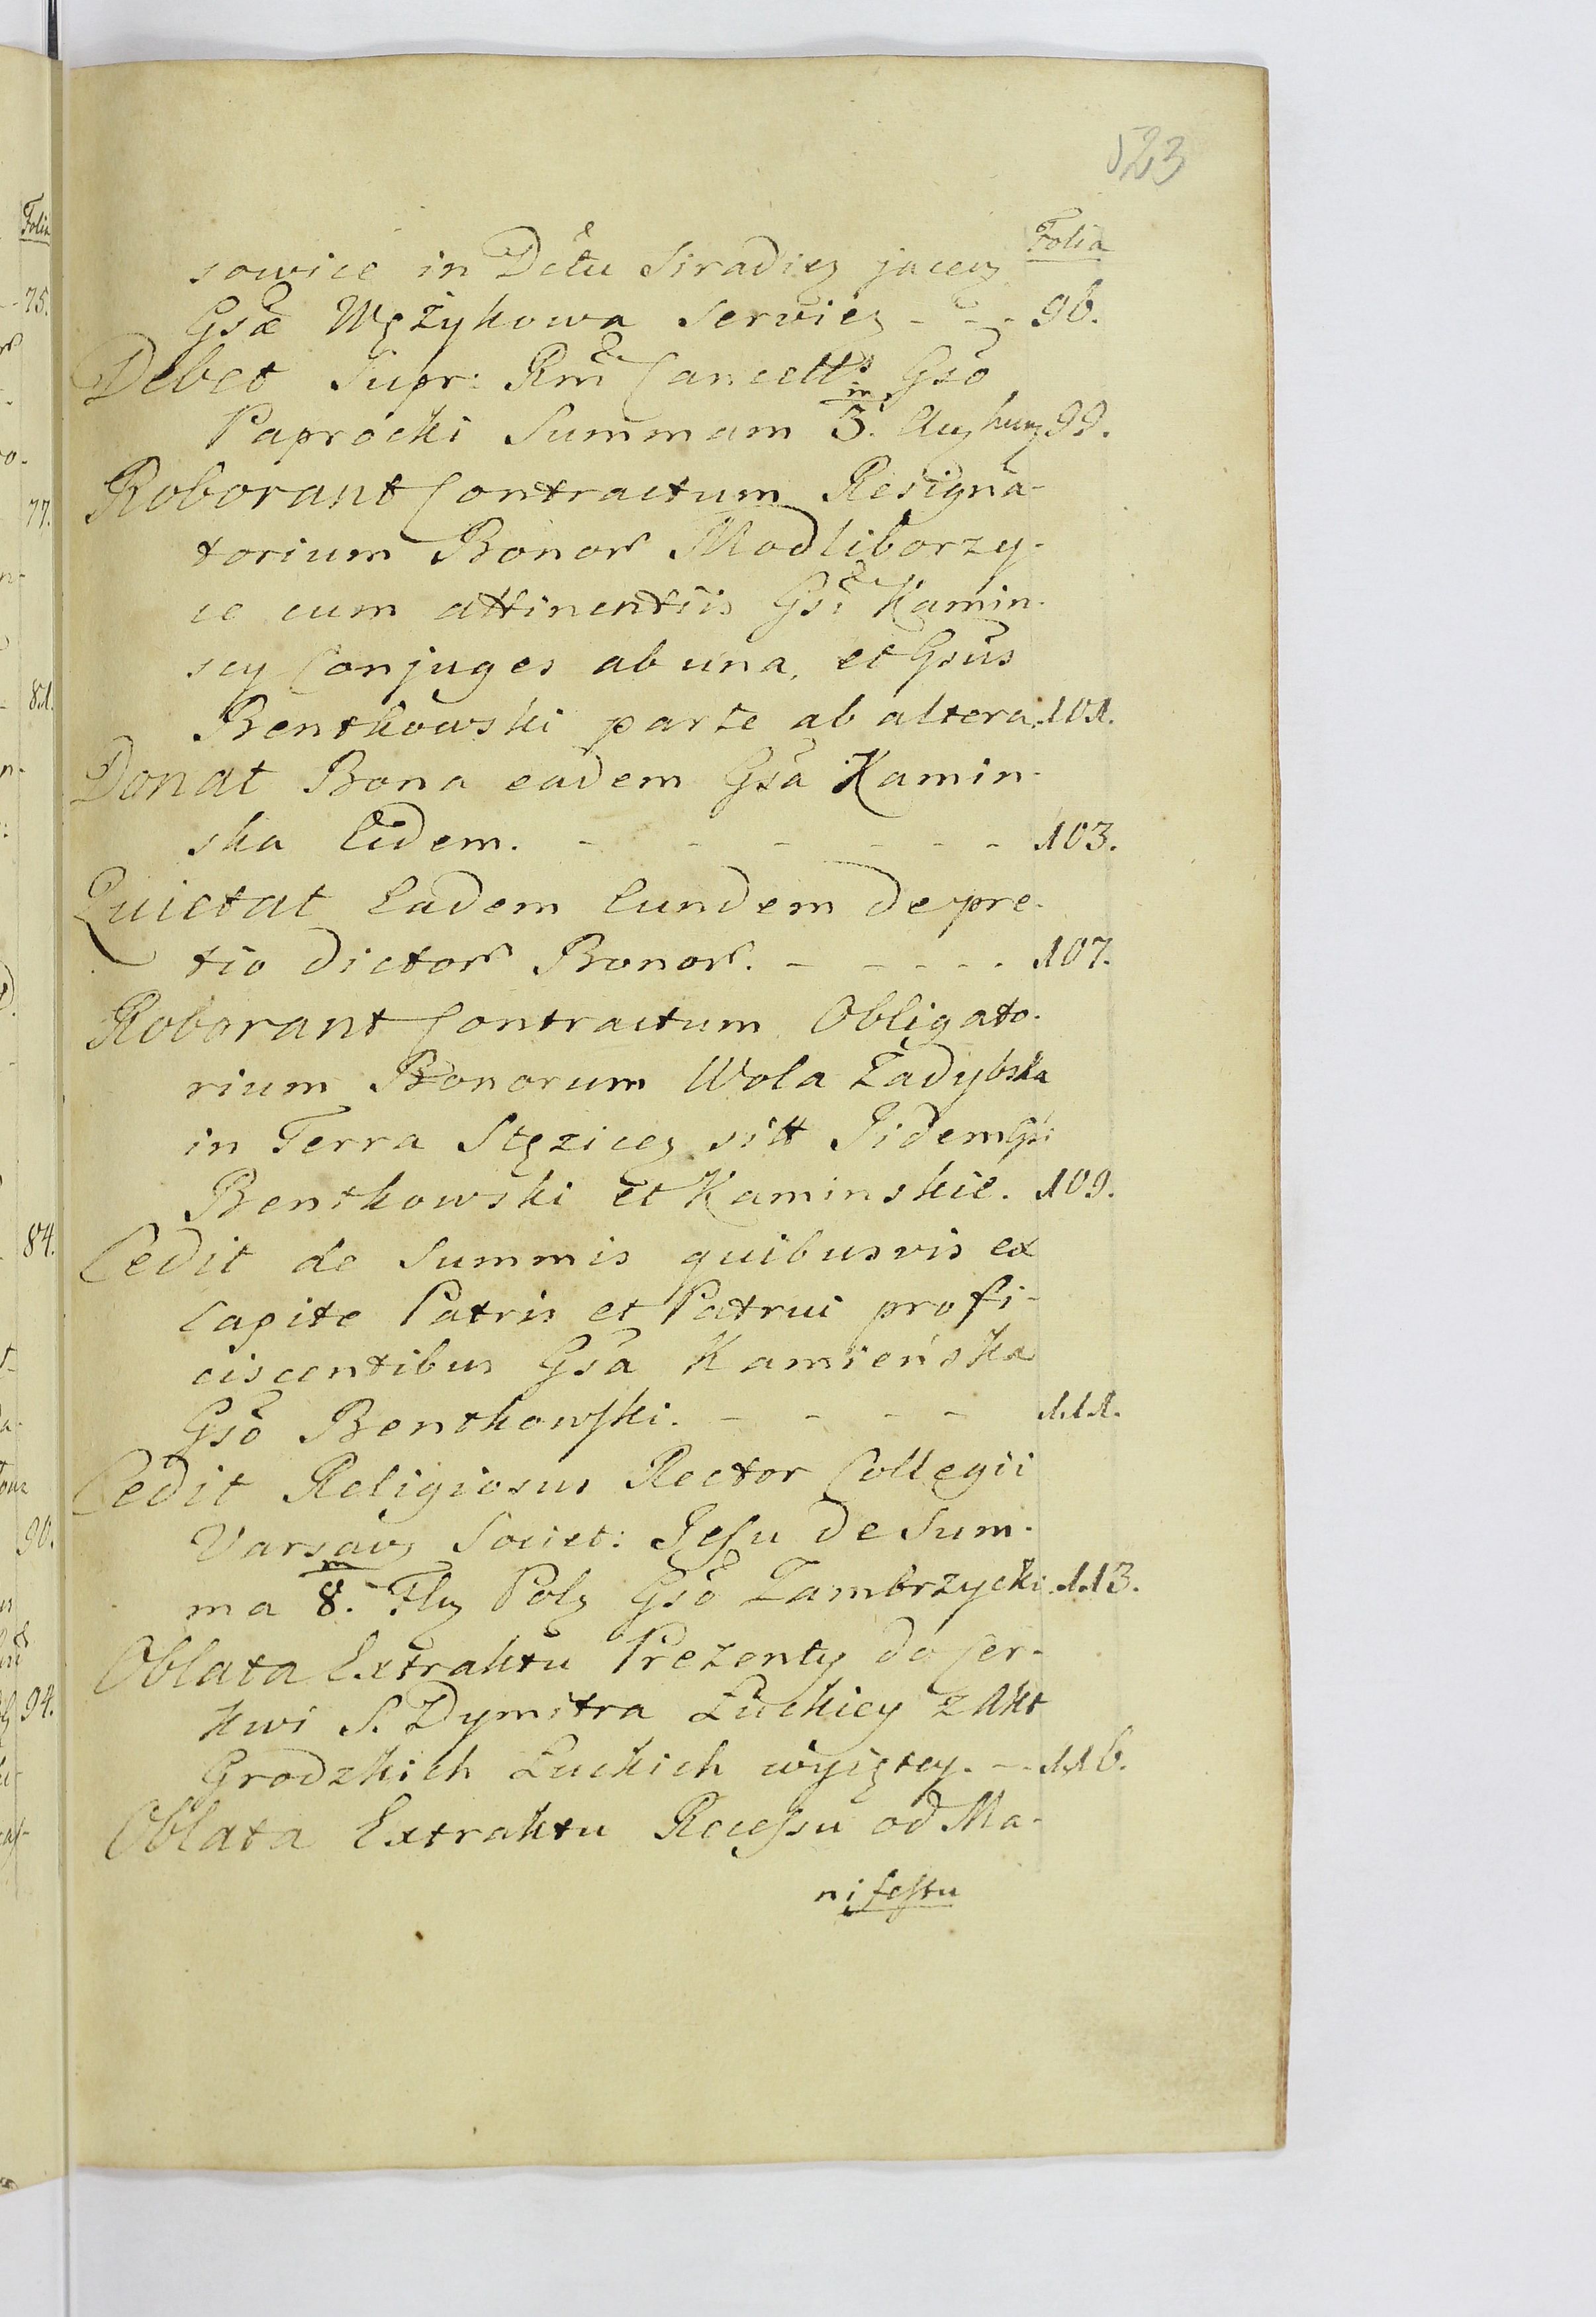 523
Folia
sowice in Dctu Siradien jacen
Gsæ Wężykowa servien - - - 96.
Debet Supr: Rm Cancellrs Gso
Paprocki Summam 3.m Aur hung 99.
Roborant Contractum Resigna-
torium Bonor Modliborzy-
ce cum attinentiis Gsi Kamin-
scy Conjuges ab una, et Gsus
Bentkowski parte ab altera. 101.
Donat Bona eadem Gsa Kamin-
ska Eidem. - - - - - - 103.
Quietat Eadem Eundem de pre-
tio dictor Bonor. - - - - - 107.
Roborant Contractum Obligato-
rium Bonorum Wola Zadybska
in Terra Stęzicen sitt Iidem Gsi
Bentkowski et Kaminskie. 109.
Cedit de Summis quibusvis ex
Capite Patris et Patrui profi-
ciscentibus Gsa Kamieńska
Gso Bentkowski. - - - - - 111.
Cedit Religiosus Rector Collegii
Varsav Societ: Jesu de Sum-
ma 8.m Flu Pol Gso Zambrzycki. 113.
Oblata Extraktu Prezenty do Cer-
kwi S. Dymitra Łuckiey z Akt
Grodzkich Łuckich wyiętey. - - 116.
Oblata Extraktu Recessu od Ma-
nifestu
Folia
75.
77.
81.
84.
90.
94.